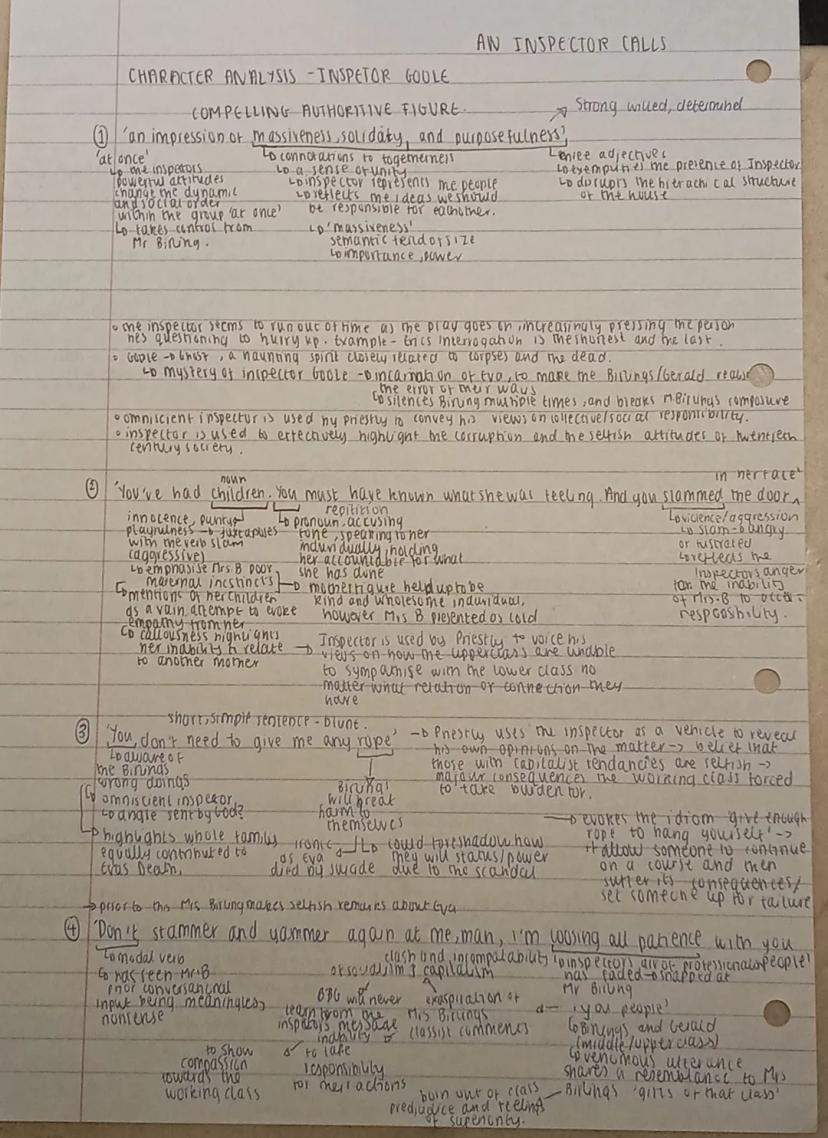 AN INSPECTOR CALLS
CHARACTER ANALYSIS - INSPETOR GOOLE
COMPELLING AUTHORITIVE FIGURE.
→ Strong willed, determined
① 'an impression of massiveness, solidity, and purposefulness',
'at once'
↳ the inspectors
powerful attitudes
change the dynamic
and social order
within the group 'at once'
↳ takes control from
Mr Birling.
↳ connotations to togetherness
↳ a sense of unity
↳ inspector represents the people
↳ reflects the ideas we should
be responsible for eachother.
↳ 'massiveness'
semantic feild of size
↳ importance, power
↳ three adjectives
↳ exemplifies the presence of Inspector
↳ disrupts the hierachical structure
of the house
• the inspector seems to run out of time as the play goes on increasingly pressing the person
hes questioning to hurry up. Example - Erics interrogation is the shortest and the last.
• Goole → Ghost, a haunting spirit closely related to corpses and the dead.
↳ mystery of inspector Goole → incarnation of Eva, to make the Birlings/Gerald realise
the error of their ways
↳ silences Birling multiple times, and breaks Mr Birlings composure
• omniscient inspector is used by priestly to convey his views on collective/social responsibility.
• inspector is used to effectively highlight the corruption and the selfish attitudes of twentieth
century society.
② 'You've had children. You must have known what she was feeling. And you slammed the door
in her face'
noun
repitition
innocence, purity
playfulness → juxtaposes
with the verb slam
(aggressive)
↳ emphasise Mrs B poor
maternal incstincts
↳ mentions of her children
as a vain attempt to evoke
empathy from her
↳ callousness highlights
her inability to relate
to another mother
↳ pronoun, accusing
tone, speaking to her
individually, holding
her accountable for what
she has done
→ mother figure held up to be
kind and wholesome individual,
however Mrs B presented as cold
→ Inspector is used by Priestly to voice his
views on how the upperclass are unable
to sympathise with the lower class no
matter what relation or connection they
have
↳ violence/aggression
↳ slam → angry
or fustrated
↳ reflects the
Inspectors anger
for the inability
of Mrs. B to accept
responsibility.
short, simple sentence - blunt.
③ 'You don't need to give me any rope'
↳ aware of
the Birlings
wrong doings
↳ omniscient inspector,
↳ angle sent by God?
↳ highlights whole family
equally contributed to
Evas Death,
Birlings
will break
harm to
themselves
ironic
as Eva
died by suicide
↳ could foreshadow how
they will status/power
due to the scandal
→ Priestly uses the inspector as a vehicle to reveal
his own opinions on the matter → belief that
those with capitalist tendancies are selfish →
majour consequences the working class forced
to take burden for.
→ evokes the idiom 'give enough
rope to hang yourself' →
allow someone to continue
on a course and then
suffer its consequences/
set someone up for failure
→ prior to this Mrs Birling makes selfish remarks about Eva
④ 'Don't stammer and yammer again at me, man, I'm loosing all patience with you
people'
↳ modal verb
↳ has seen Mr B
prior conversational
input being meaningless,
nonsense
clash and incompatability
of socialism & capitalism
will never
learn from the
inspectors message
inability
to take
responsibility
for their actions
to show
compassion
towards the
working class
exasperation of
Mrs Birlings
classist comments
↳ inspectors air of professionalism
has faded → snapped at
Mr Birling
'you people'
↳ Birlings and Gerald
(middle/upperclass)
↳ venomous utterance
shares a resemblance to Mrs
Birlings 'girls of that class'
born out of class
predjudice and feelings
of superiority.